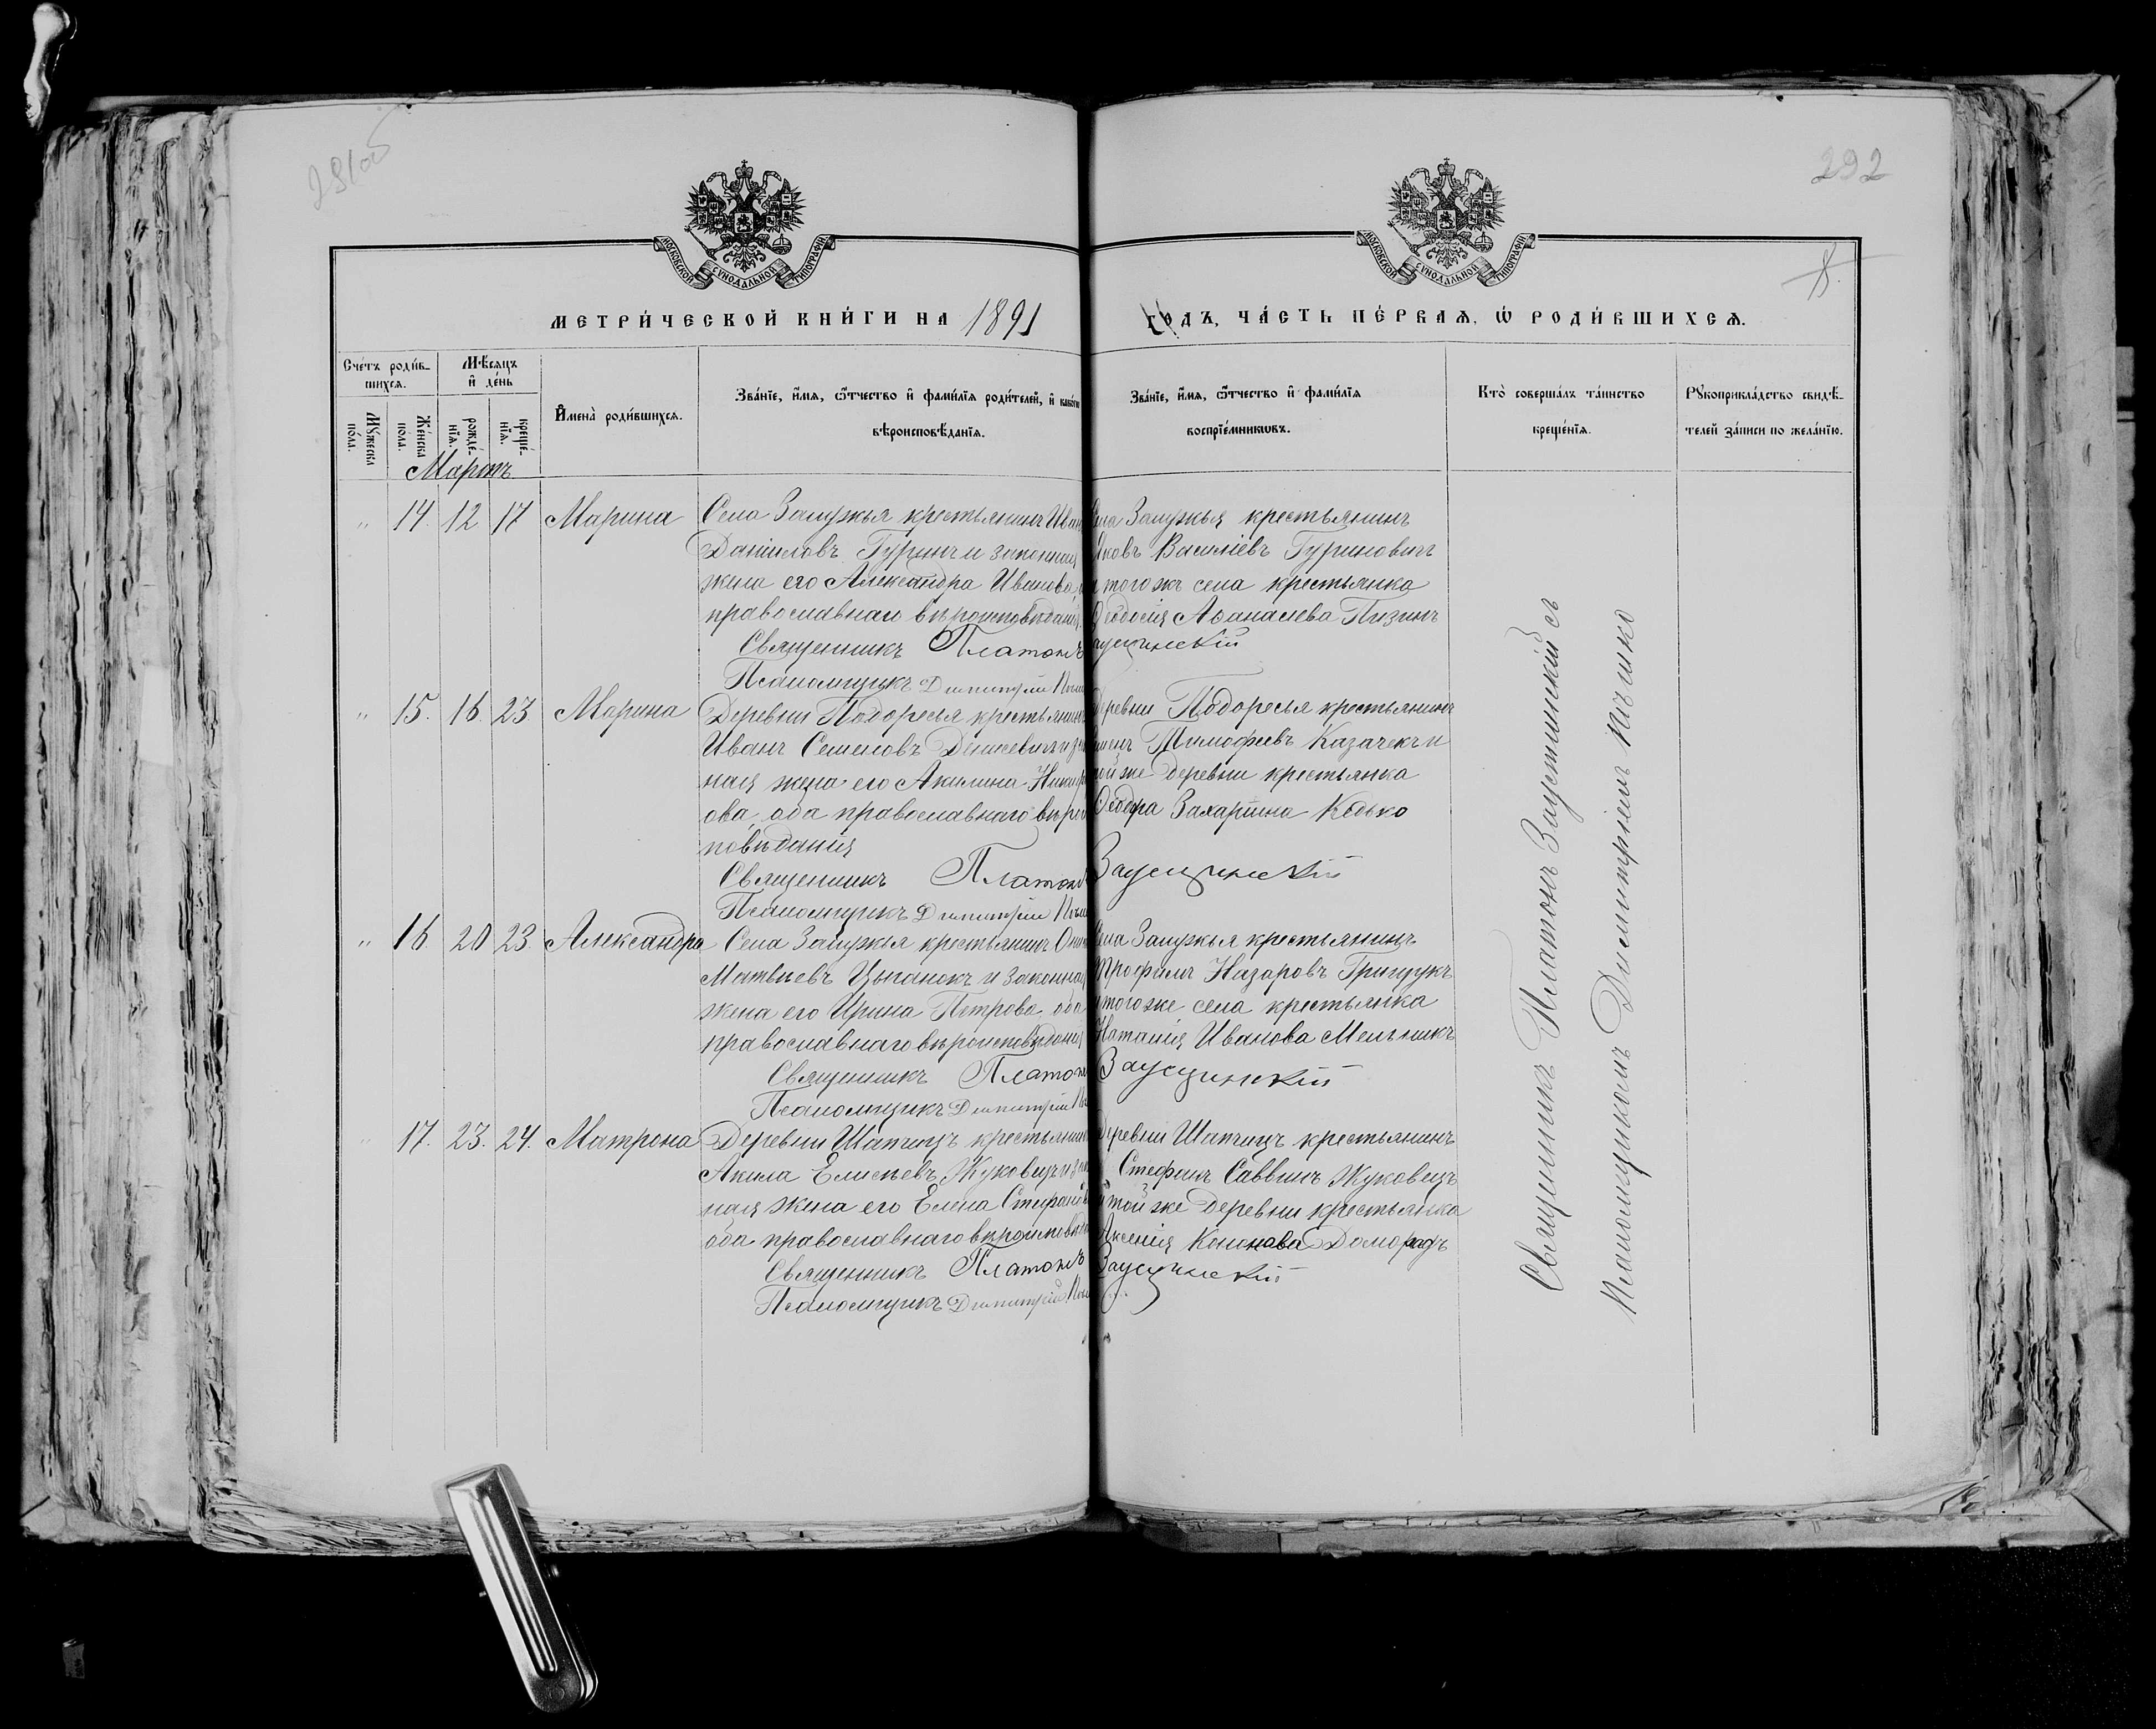 291об
292
МОСКОВСКОЙ СѴНОДАЛЬНОЙ ТИПОГРАФІИ
МОСКОВСКОЙ СѴНОДАЛЬНОЙ ТИПОГРАФІИ
МЕТРИ́ЧЕСКОЙ КНИ́ГИ НА 1891
ГОДЪ, ЧА́СТЬ ПЕ́РВАЯ, Ѡ РОДИ́ВШИХСЯ.
Сче́тъ роди́в-
шихся.
Мѣсяцъ
и де́нь
Му́жеска
по́ла.
Же́нска
по́ла.
рожде́-
нїя.
креще́-
нїя.
И҆мена̀ роди́вшихся.
Зва́нїе, и҆́мя, ѻ҆́тчество и҆ фами́лїя роди́телей, и҆ како́гѡ
вѣроисповѣ́данїя.
Зва́нїе, и҆́мя, ѻ҆́тчество и҆ фами́лїя
воспрїе́мникѡвъ.
Кто̀ соверша́лъ та́инство
креще́нїя.
Рꙋкоприкла́дство свидѣ́-
телей за́писи по жела́нїю.
Мартъ
" 14. 12 17 Марина
Села Залужья крестьянинъ Иван
Даніиловъ Гуринъ и законная
жена его Александра Иванова,
православнаго вѣроисповѣданія.
Священникъ Платонъ
Псаломщикъ Димитрій
Села Залужья крестьянинъ
Яковъ Василіевъ Гуриновичъ
и того жъ села крестьянка
Ѳеодосія Аѳанасіева Пизинъ
" 15. 16. 23 Марина
Деревни Подоресья крестьянинъ
Иванъ Семеновъ Денисевичъ и
ная жена его Акилина
ова, оба православнаго вѣрои
повѣданія
Священникъ Платонъ
Псаломщикъ Димитрій
Деревни Подоресья крестьянинъ
Тимофеевъ Казачекъ и
той же деревни крестьянка
Ѳеодора Захаріина Кедько
Заустинскій
" 16 20 23 Александра
Села Залужья крестьянинъ
Матвѣевъ Цыганокъ и законная
жена его Ирина Петрова, оба
православнаго вѣроисповѣданія
Священникъ Платонъ
Псаломщикъ Димитрій
Села Залужья крестьянинъ
Трофимъ Назаровъ Грицукъ
и того же села крестьянка
Наталія Иванова Мельникъ
Заустинскій
" 17. 23. 24. Матрона
Деревни Шапчицъ крестьянинъ
Акила Елисѣевъ Жуковецъ и
ная жена его Елена Стефанова
оба православнаго вѣроисповѣ
Священникъ Платонъ
Псаломщикъ Димитрій
Деревни Шапчицъ крестьянинъ
Стефанъ Саввинъ Жуковецъ
и той же деревни крестьянка
Аксенія Кононова Доморадъ
Заустинскій
Священникъ Платонъ Заустинскій съ
Псаломщикомъ Димитріемъ Пѣшко